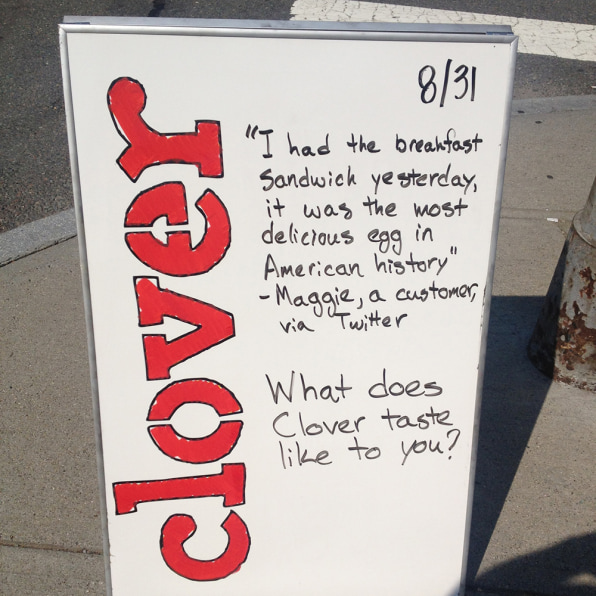 clover
8/31
"I had the breakfast
sandwich yesterday,
it was the most
delicious egg in
American history"
- Maggie, a customer,
via Twitter
What does
Clover taste
like to you?